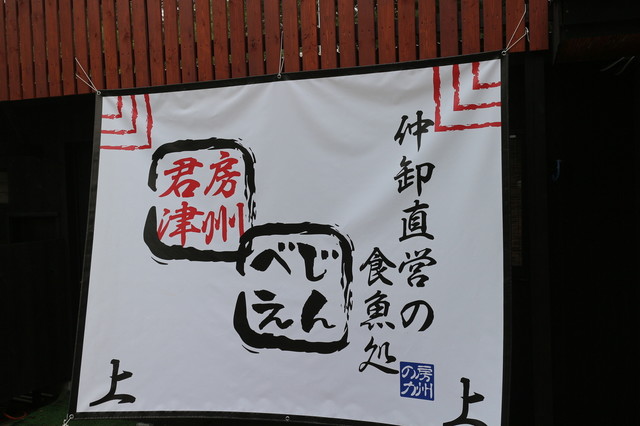 仲卸直営の
食魚処
房州
の力
房州
君津
じん
べえ
上
上